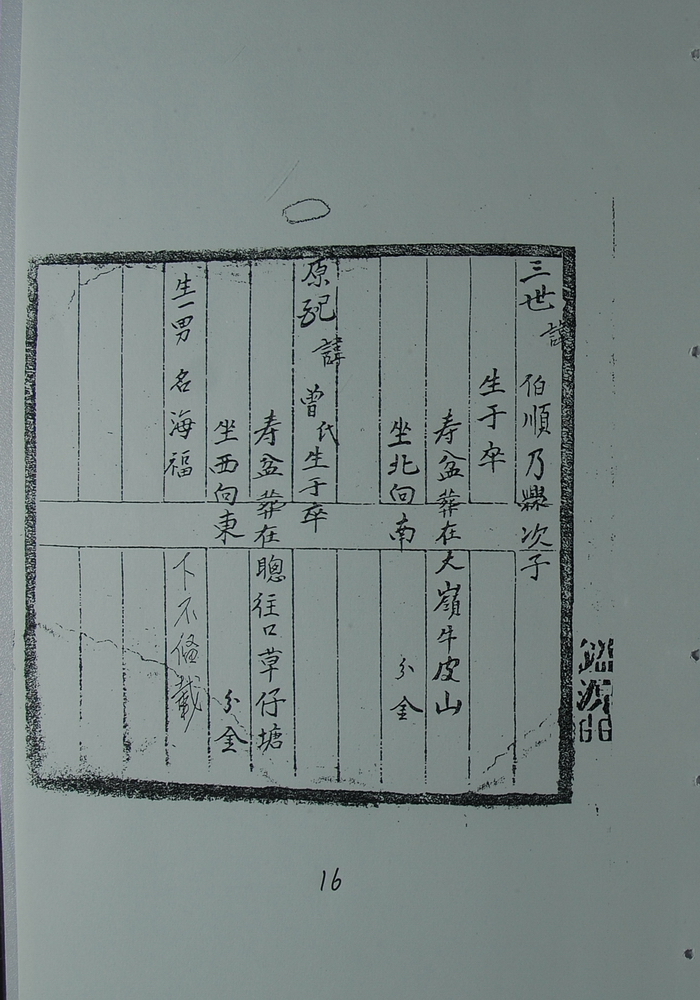 三世 諱 伯順乃㸑次子
生于卒
寿盆葬在大嶺牛皮山
坐北向南 分金
原配 諱 曾氏生于卒
寿盆葬在聰往口草仔塘
坐西向東 分金
生一男 名海福 下不俻載
16